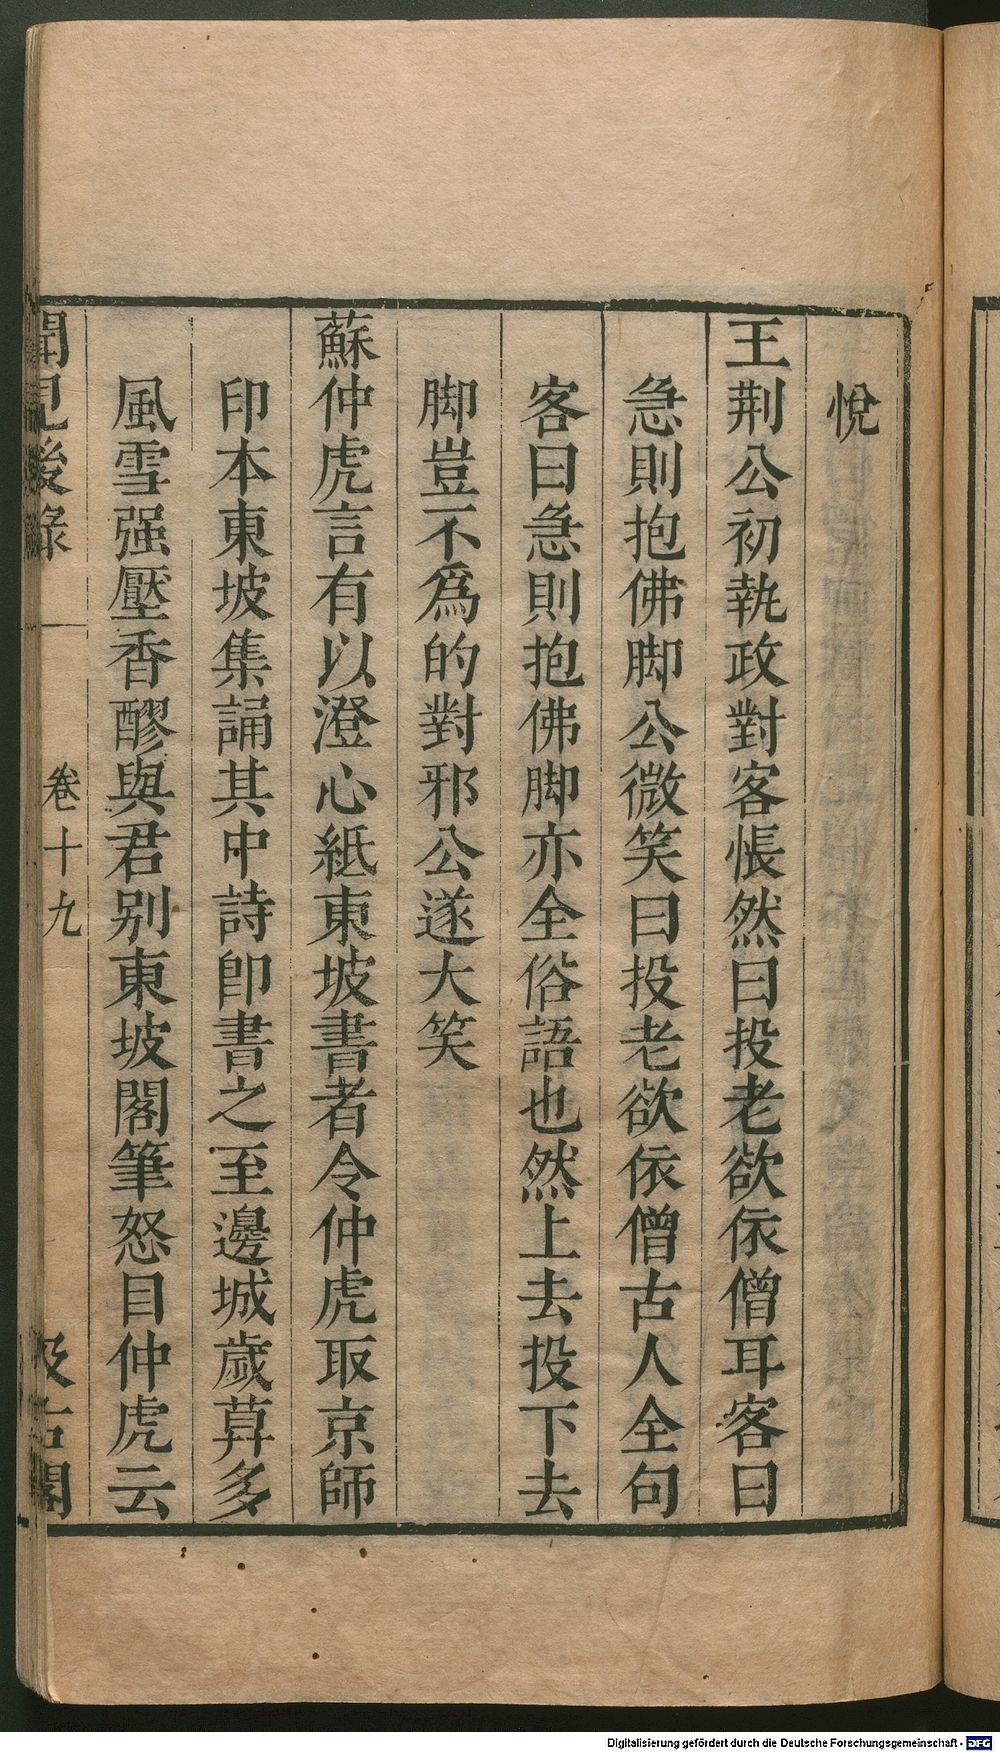 悅
王荆公初執政對客悵然曰投老欲依僧耳客曰
急則抱佛脚公微笑曰投老欲依僧古人全句
客曰急則抱佛脚亦全俗語也然上去投下去
脚豈不爲的對邪公遂大笑
蘇仲虎言有以澄心紙東坡書者令仲虎取京師
印本東坡集誦其中詩卽書之至邊城歲莫多
風雪强壓香醪與君别東坡閣筆怒目仲虎云
聞見後錄
卷十九
汲古閣
Digitalisierung gefördert durch die Deutsche Forschungsgemeinschaft - DFG